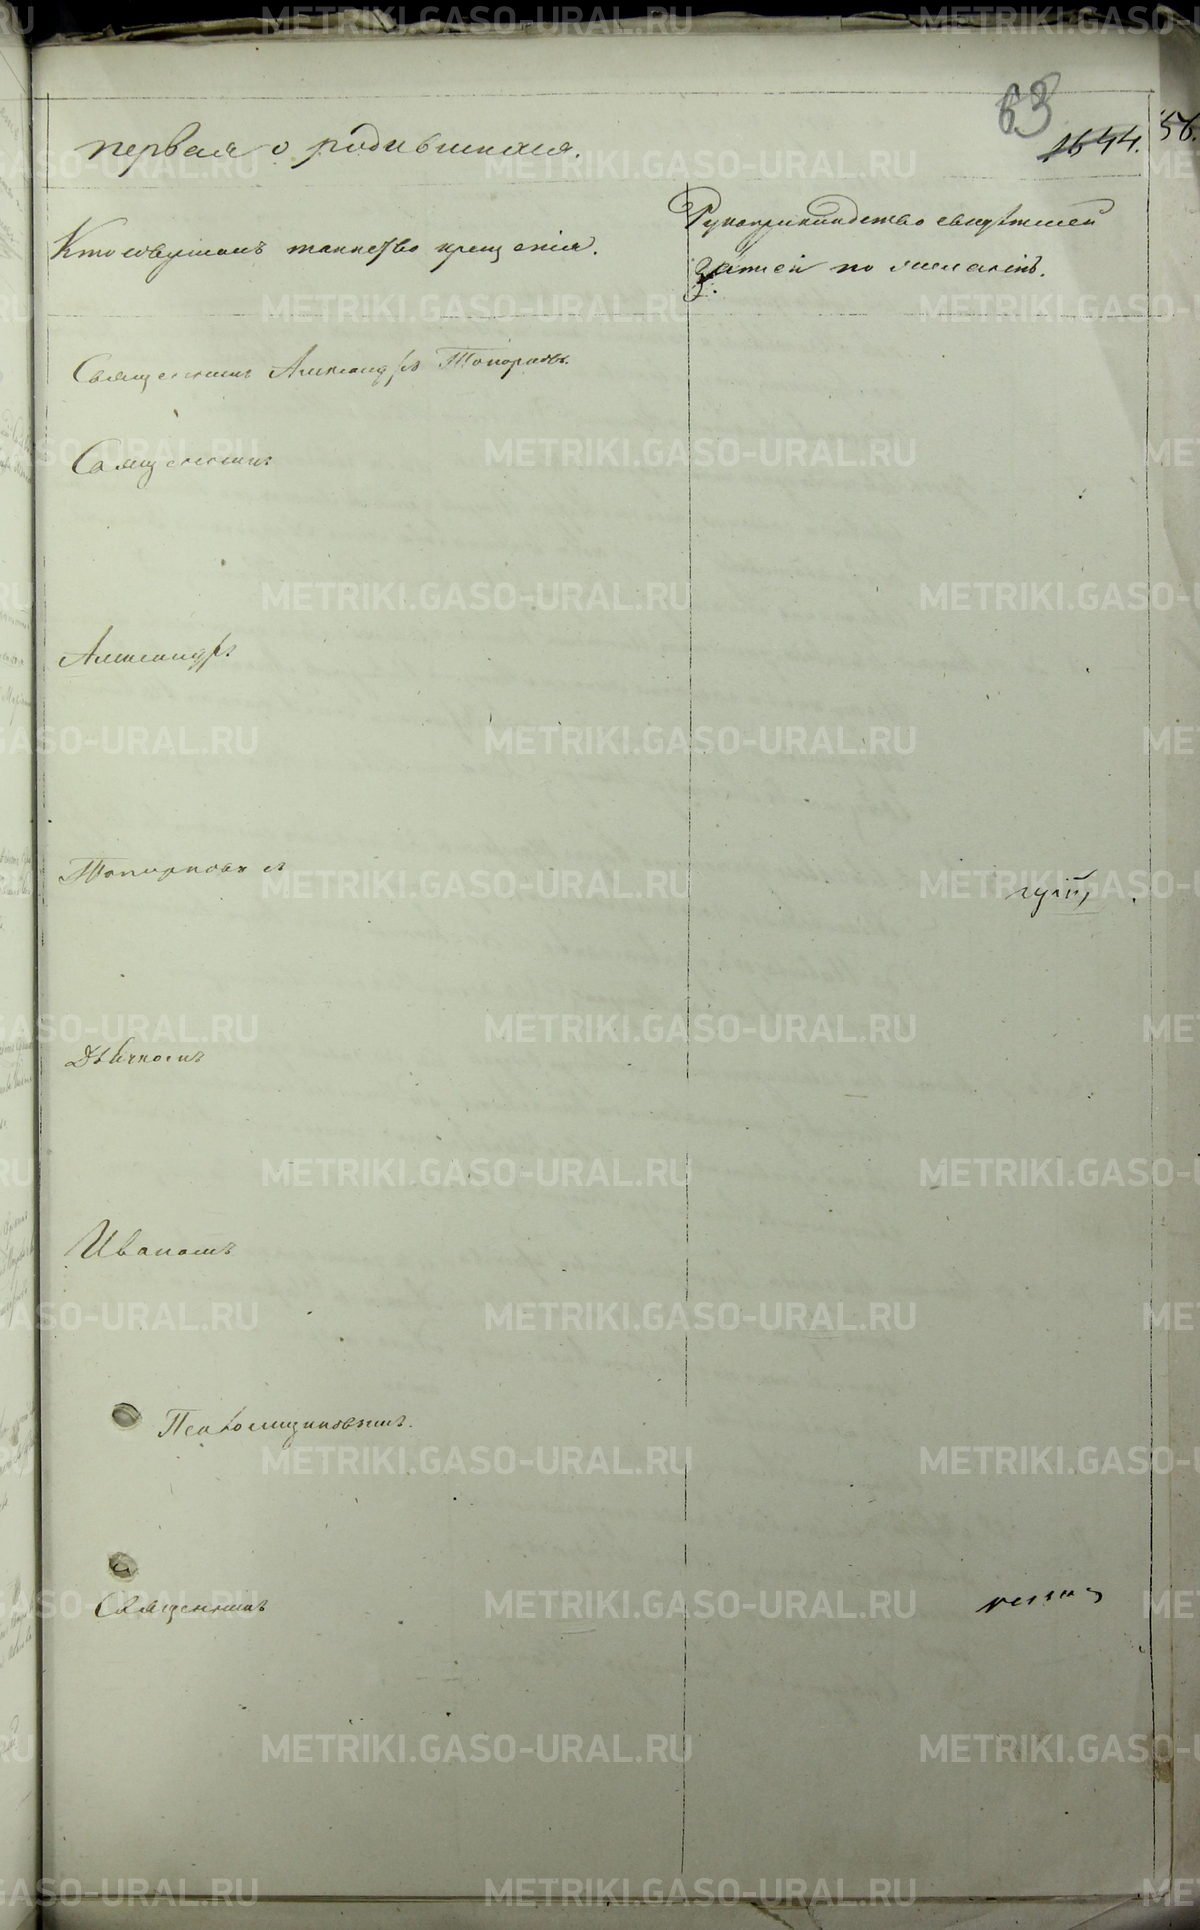 63
1644. 56.
первая о родившихся.
Кто совершалъ таинство крещенія.
Рукоприкладство свидѣтелей
записи по желанію.
Священникъ Александръ Топорковъ.
Священникъ
Александръ
Топорковъ съ
Дьячкомъ
Иваномъ
Священникъ
METRIKI.GASO-URAL.RU